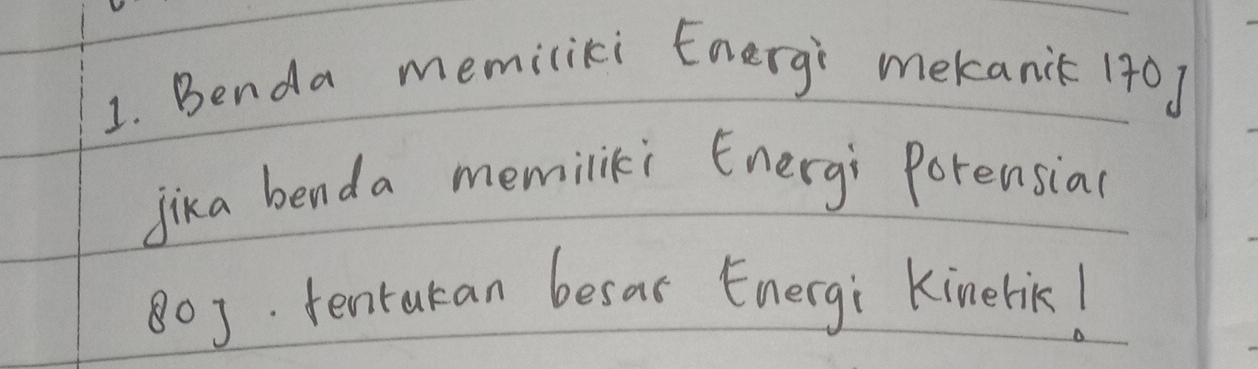 1. Benda memiliki Energi mekanik 170 J
jika benda memiliki Energi Potensial
80 J. tentukan besar Energi Kinetik!